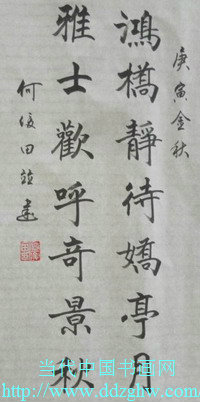 庚寅金秋
鴻橋靜待嬌亭月
雅士歡呼奇景秋
何俊田並書
当代中国书画网
http://www.ddzghw.com/